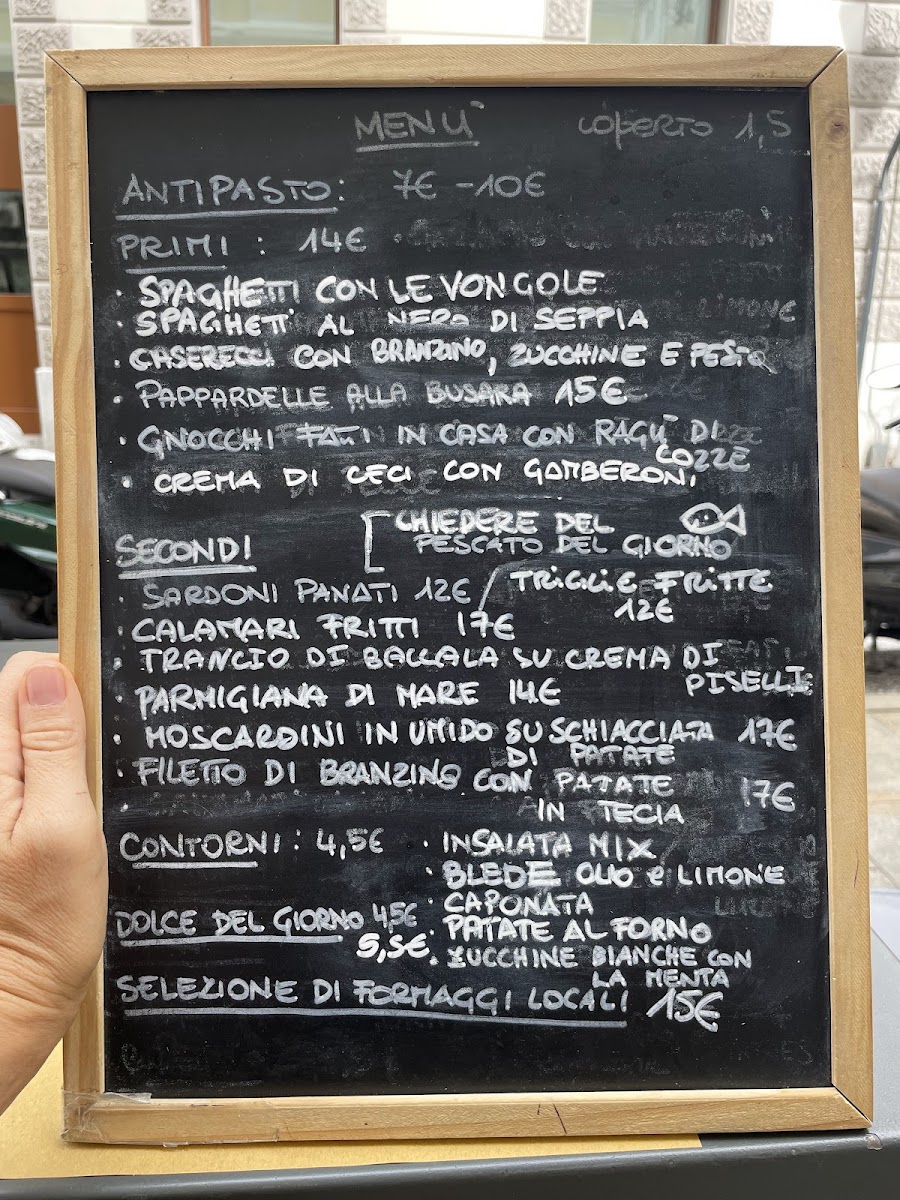 MENÙ
COPERTO 1,5
ANTIPASTO: 7€ - 10€
PRIMI : 14€
· SPAGHETTI CON LE VONGOLE
· SPAGHETTI AL NERO DI SEPPIA
· CASERECCI CON BRANZINO, ZUCCHINE E PESTO
· PAPPARDELLE ALLA BUSARA 15€
· GNOCCHI FATTI IN CASA CON RAGÙ DI
COZZE
· CREMA DI CECI CON GAMBERONI
SECONDI
CHIEDERE DEL
PESCATO DEL GIORNO
· SARDONI PANATI 12€ / TRIGLIE FRITTE
12€
· CALAMARI FRITTI 17€
· TRANCIO DI BACCALA SU CREMA DI
PISELLI
· PARMIGIANA DI MARE 14€
· MOSCARDINI IN UMIDO SU SCHIACCIATA 17€
DI PATATE
· FILETTO DI BRANZINO CON PATATE 17€
IN TECIA
CONTORNI: 4,5€
· INSALATA MIX
· BLEDE OLIO e LIMONE
· CAPONATA
· PATATE AL FORNO
· ZUCCHINE BIANCHE CON
LA MENTA
DOLCE DEL GIORNO 4,5€
5,5€
SELEZIONE DI FORMAGGI LOCALI 15€